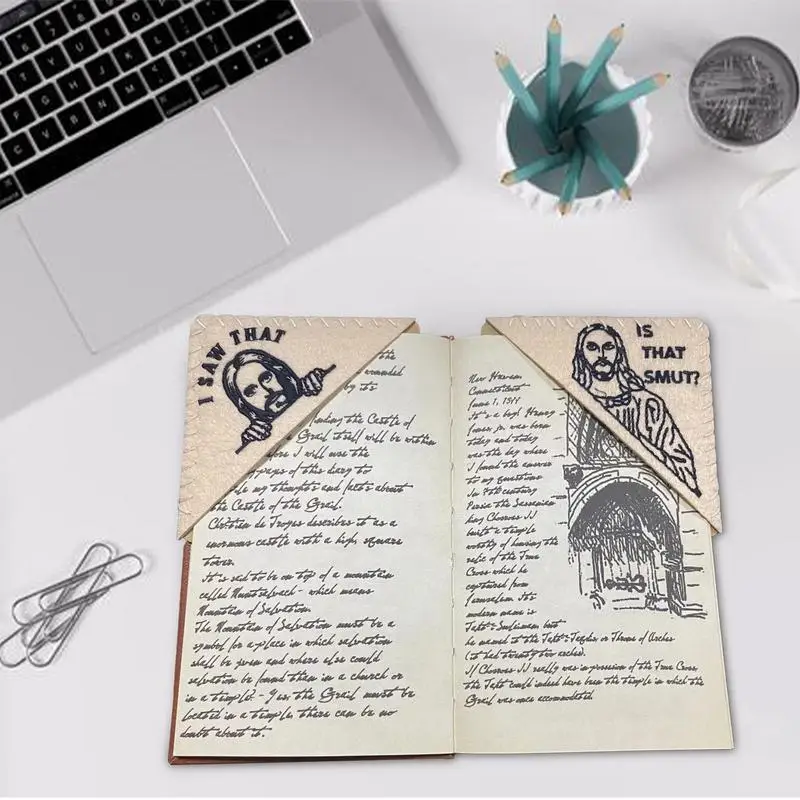 I SAW THAT
IS
THAT
SMUT?
the
wounded
by its
finding the Castle of
Grail itself will be within
fore I will use the
pages of this diary to
my thoughts and facts about
the Castle of the Grail.
Chrétien de Troyes describes it as a
enormous castle with a high, square
tower.
It is said to be on top of a mountain
called Muntsalvach - which means
Mountain of Salvation.
The Mountain of Salvation must be a
symbol for a place in which salvation
shall be given and where else could
salvation be found than in a church or
in a temple! - Yes, the Grail must be
located in a temple, there can be no
doubt about it.
New Haven
Connecticut
June 1, 1911
It's a boy! Henry
Jones, jr. was born
today and today
was the day where
I found the answer
to my questions
In 7th century
Persia the Sassanian
king Chosroes II
built a temple
worthy of housing the
relic of the True
Cross which he
captured from
Jerusalem. It's
modern name is
Takt-i-Suleiman but
he named it the Takt-i-Taqdis or Throne of Arches
(it had twenty two arches).
If Chosroes II really was in possession of the True Cross
the Takt could indeed have been the temple in which the
Grail was once accommodated.